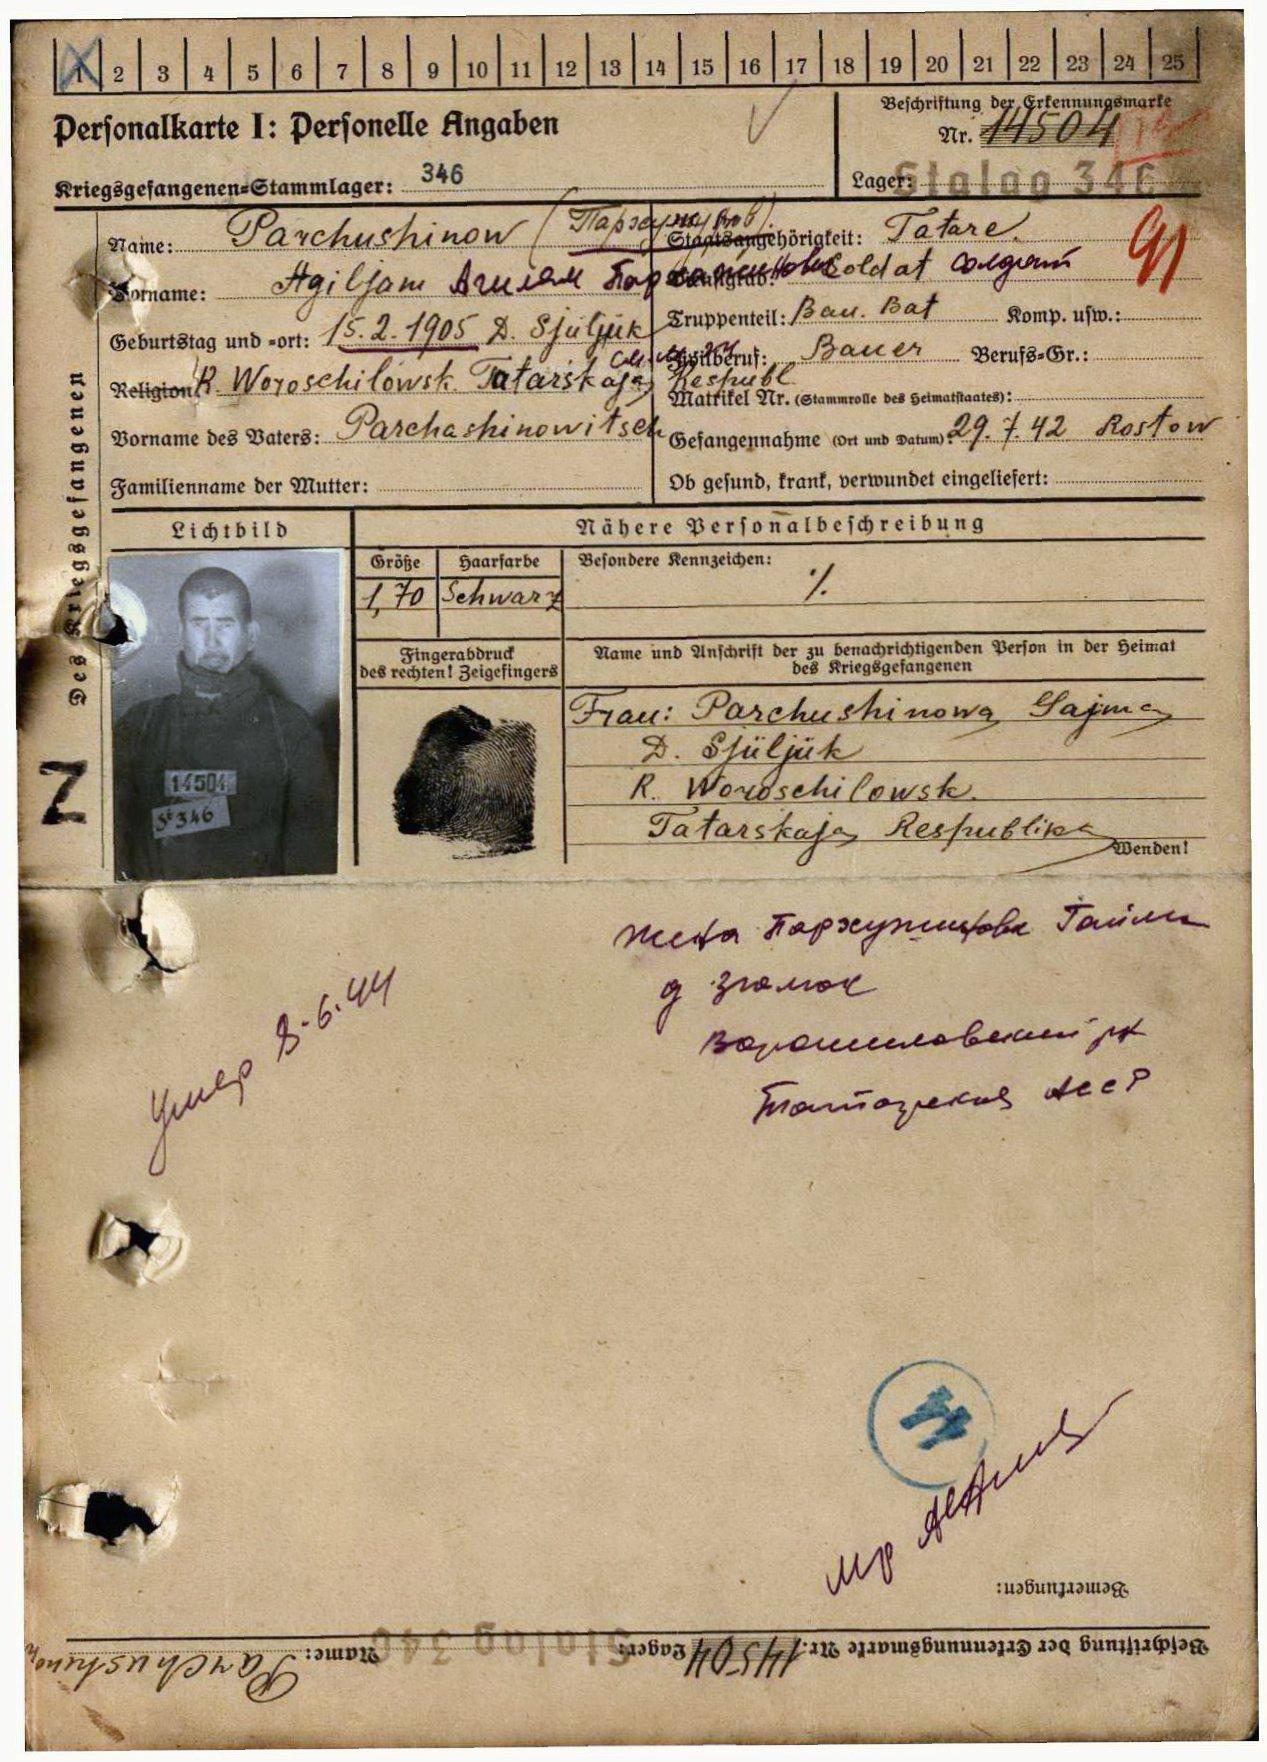 1 2 3 4 5 6 7 8 9 10 11 12 13 14 15 16 17 18 19 20 21 22 23 24 25
Personalkarte I: Personelle Angaben
Beschriftung der Erkennungsmarke
Nr. 14504
Kriegsgefangenen=Stammlager: 346
Lager: Stalag 346
Des Kriegsgefangenen
Name: Parchushinow
Staatsangehörigkeit: Tatare
91
Vorname: Agiljam Агилям
Dienstgrad: Soldat солдат
Geburtstag und =ort: 15.2.1905 D. Sjüljük
Truppenteil: Bau. Bat Komp. usw.:
Zivilberuf: Bauer Berufs=Gr.:
Religion R. Woroschilowsk. Tatarskaja Respubl.
Matrikel Nr. (Stammrolle des Heimatstaates):
Vorname des Vaters: Parchashinowitsch
Gefangennahme (Ort und Datum): 29.7.42 Rostow
Familienname der Mutter:
Ob gesund, krank, verwundet eingeliefert:
Lichtbild
Nähere Personalbeschreibung
Größe Haarfarbe Besondere Kennzeichen:
1,70 Schwarz ./.
Fingerabdruck
des rechten! Zeigefingers
Name und Anschrift der zu benachrichtigenden Person in der Heimat
des Kriegsgefangenen
Frau: Parchushinowa Gajma
D. Sjüljük
R. Woroschilowsk.
Tatarskaja Respublika
Wenden!
14504
St 346
Z
Жена Пархужинова Гайма
д
Ворошиловский рн
Татарская АССР
Умер 8.6.44
Bemerkungen:
Beschriftung der Erkennungsmarke Nr. 14504 Lager: Stalag 346 Name: Parchushinow